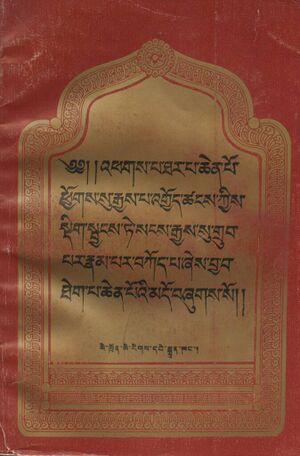 ༄༅། །འཕགས་པ་ཐར་པ་ཆེན་པོ་
ཕྱོགས་སུ་རྒྱས་པ་འགྱོད་ཚངས་ཀྱིས་
སྡིག་སྦྱངས་ཏེ་སངས་རྒྱས་སུ་གྲུབ་
པར་རྣམ་པར་བཀོད་པ་ཞེས་བྱ་བ་
ཐེག་པ་ཆེན་པོའི་མདོ་བཞུགས་སོ། །
སི་ཁྲོན་མི་རིགས་དཔེ་སྐྲུན་ཁང་།